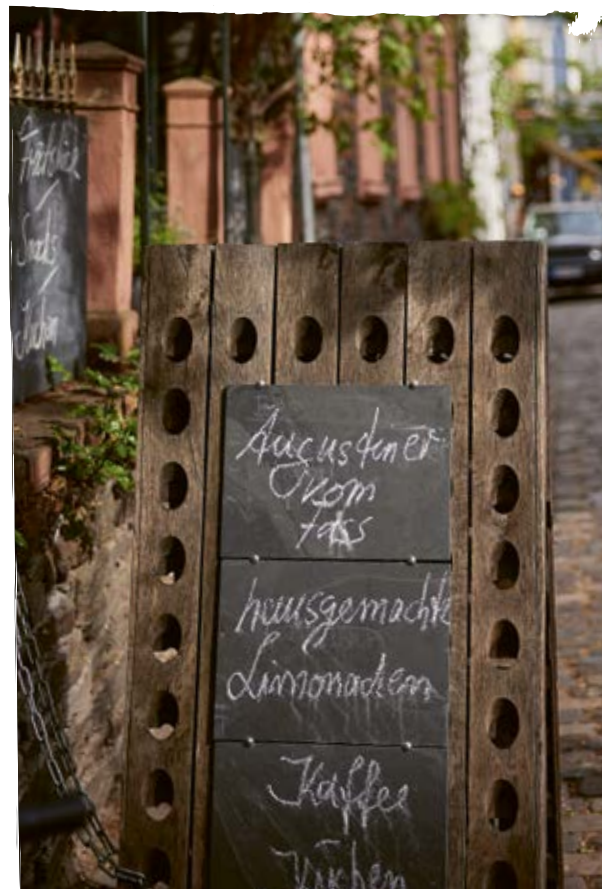 Frühstück
Snacks
Kuchen
Augustiner
vom
fass
hausgemachte
Limonaden
Kaffee
Kuchen